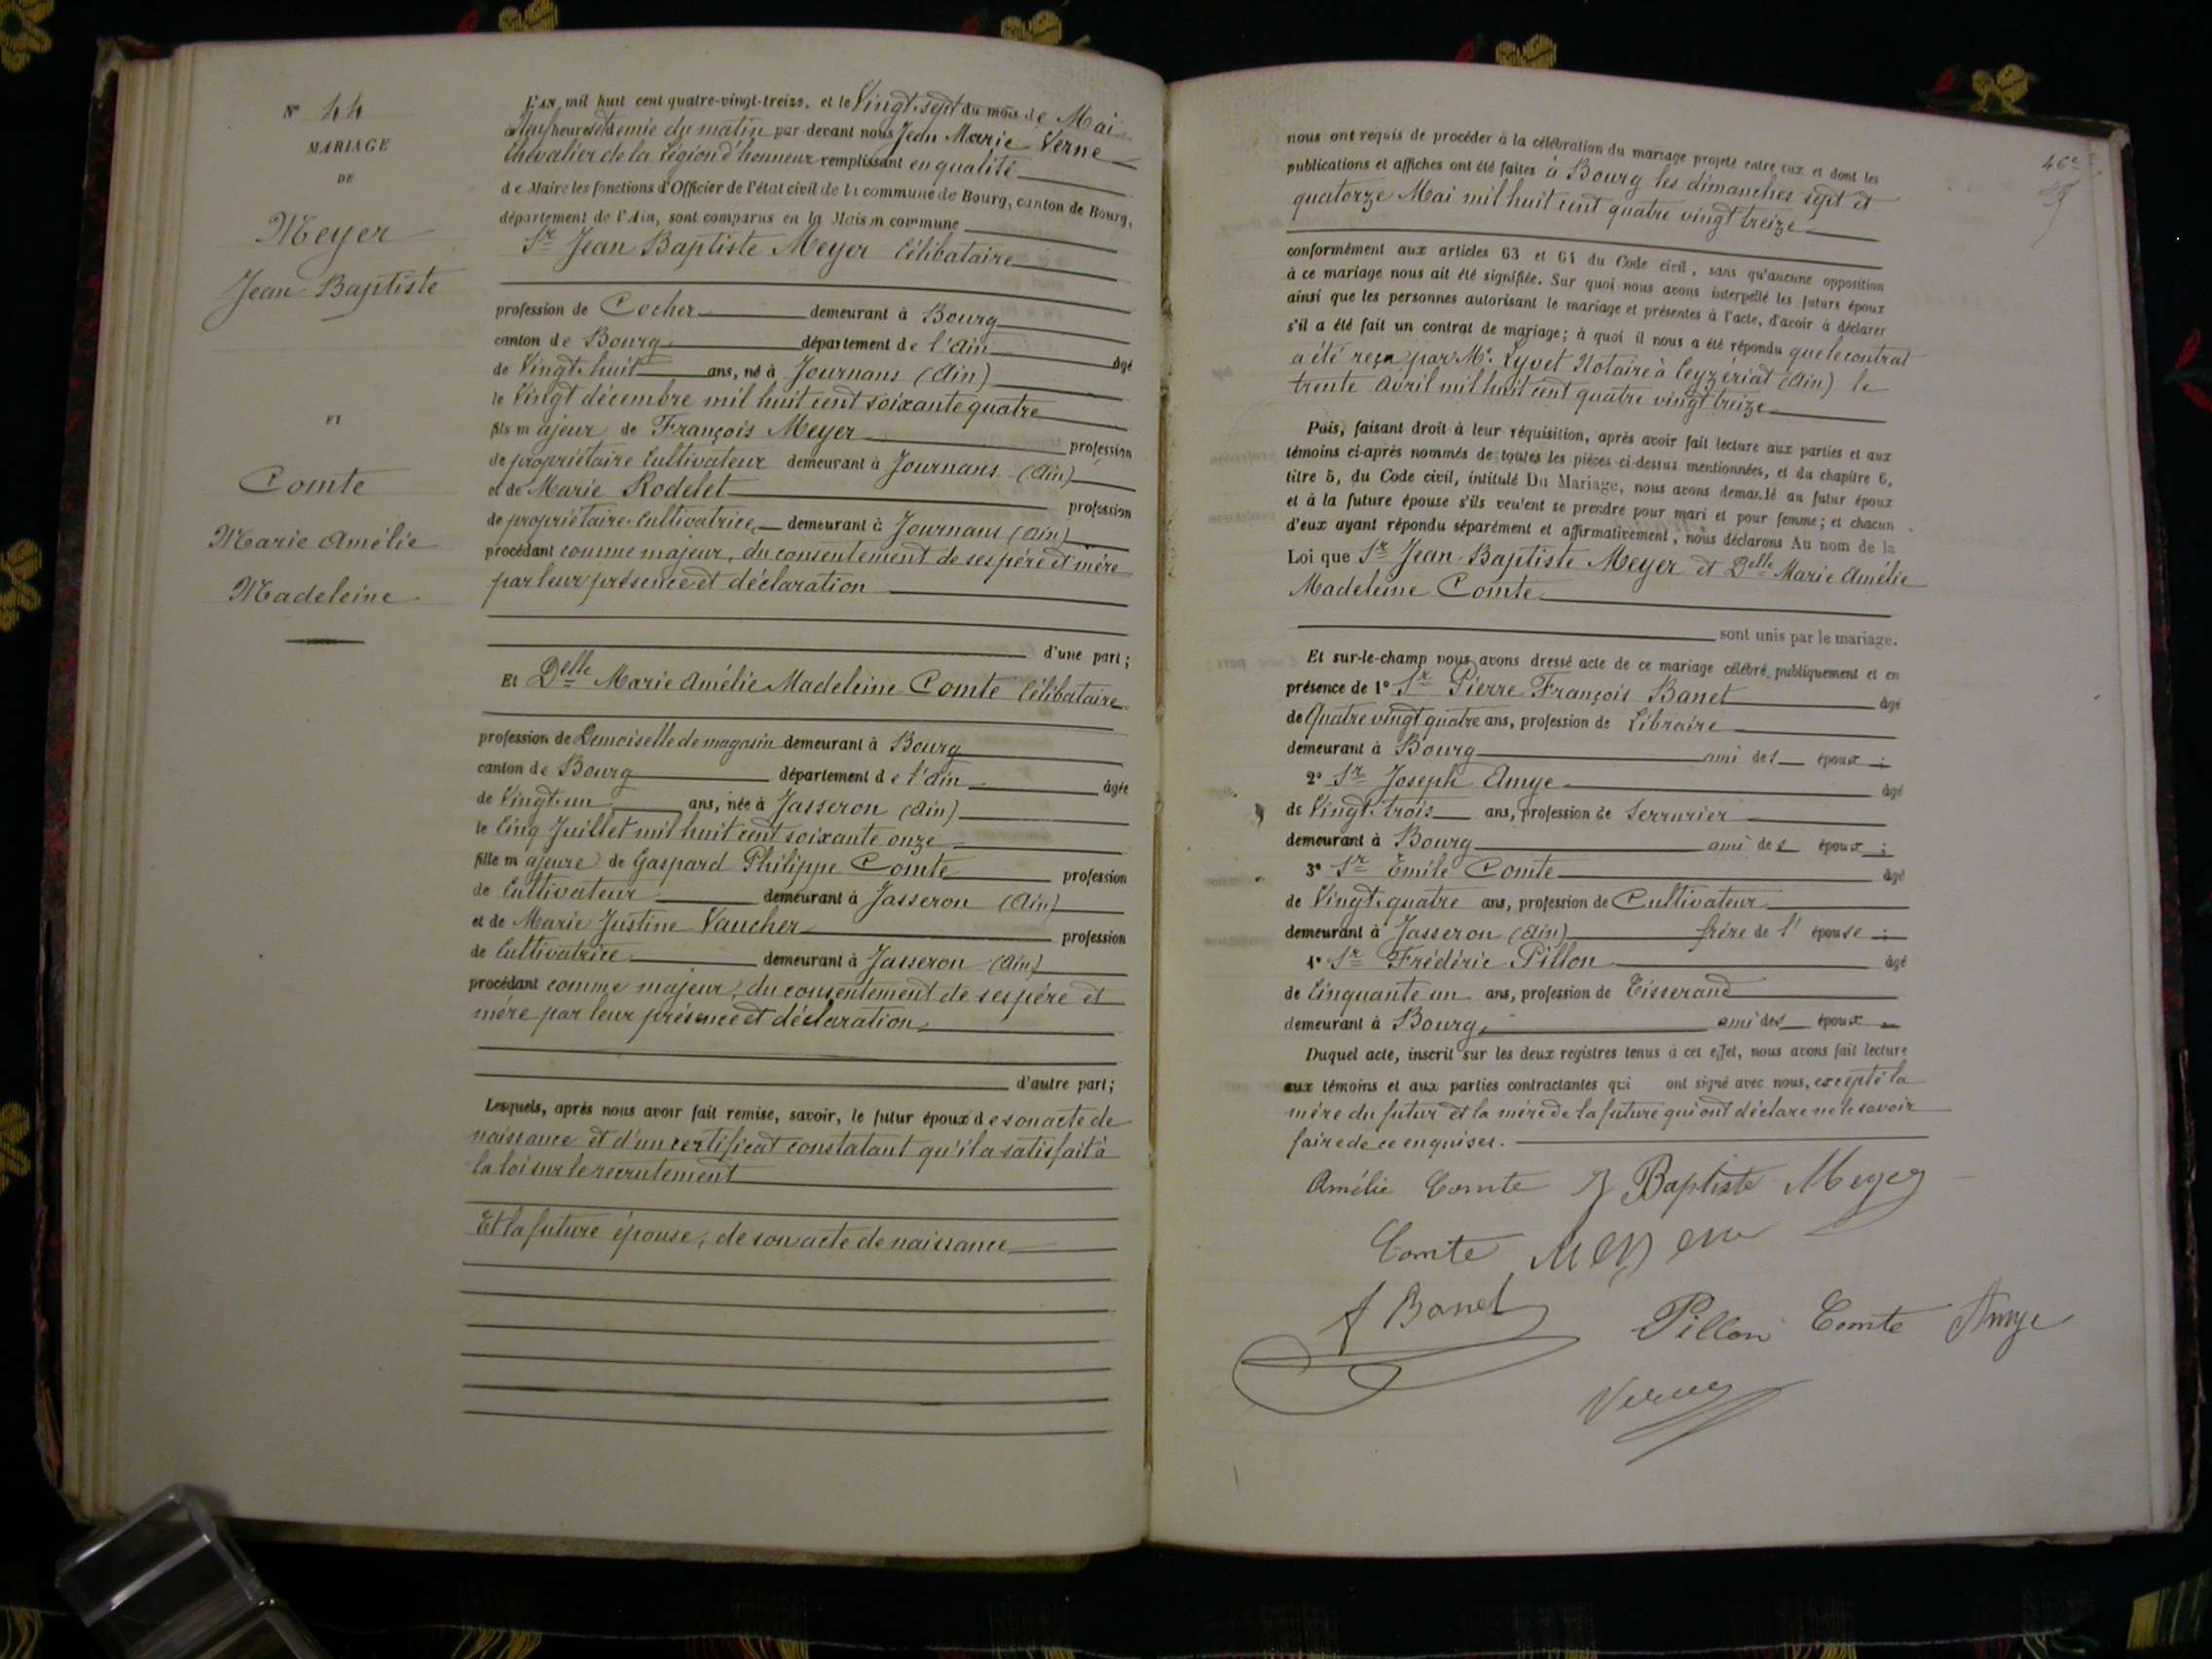 N° 44
MARIAGE
DE
Meyer
Jean-Baptiste
ET
Comte
Marie Amélie
Madeleine
L'AN mil huit cent quatre-vingt-treize, et le Vingt-sept du mois de Mai
à Neuf heures et demie du matin par devant nous Jean Marie Verne
Chevalier de la Légion d'honneur remplissant en qualité
de Maire les fonctions d'Officier de l'état civil de la commune de Bourg, canton de Bourg,
département de l'Ain, sont comparus en la Maison commune
Sr Jean Baptiste Meyer Célibataire
profession de Cocher demeurant à Bourg
canton de Bourg département de l'Ain âgé
de Vingt-huit ans, né à Journans (Ain)
le Vingt décembre mil huit cent soixante quatre
fils majeur de François Meyer profession
de propriétaire Cultivateur demeurant à Journans (Ain)
et de Marie Rodelet profession
de propriétaire-Cultivatrice, demeurant à Journans (Ain)
procédant comme majeur, du consentement de ses père et mère
par leur présence et déclaration
d'une part;
Et Delle Marie Amélie Madeleine Comte Célibataire
profession de Demoiselle de magasin demeurant à Bourg
canton de Bourg département de l'Ain âgée
de Vingt-un ans, née à Jasseron (Ain)
le Cinq Juillet mil huit cent soixante onze
fille majeure de Gaspard Philippe Comte profession
de Cultivateur demeurant à Jasseron (Ain)
et de Marie Justine Vaucher profession
de Cultivatrice demeurant à Jasseron (Ain)
procédant comme majeur, du consentement de ses père et
mère par leur présence et déclaration
d'autre part;
Lesquels, après nous avoir fait remise, savoir, le futur époux de son acte de
naissance et d'un certificat constatant qu'il a satisfait à
la loi sur le recrutement
Et la future épouse, de son acte de naissance
46e
nous ont requis de procéder à la célébration du mariage projeté entre eux et dont les
publications et affiches ont été faites à Bourg les dimanches sept et
quatorze Mai mil huit cent quatre vingt treize
conformément aux articles 63 et 64 du Code civil, sans qu'aucune opposition
à ce mariage nous ait été signifiée. Sur quoi nous avons interpellé les futurs époux
ainsi que les personnes autorisant le mariage et présentes à l'acte, d'avoir à déclarer
s'il a été fait un contrat de mariage; à quoi il nous a été répondu que le contrat
a été reçu par Me. Lyvet Notaire à Ceyzériat (Ain) le
trente Avril mil huit cent quatre vingt treize
Puis, faisant droit à leur réquisition, après avoir fait lecture aux parties et aux
témoins ci-après nommés de toutes les pièces ci-dessus mentionnées, et du chapitre 6,
titre 5, du Code civil, intitulé Du Mariage, nous avons demandé au futur époux
et à la future épouse s'ils veulent se prendre pour mari et pour femme; et chacun
d'eux ayant répondu séparément et affirmativement, nous déclarons Au nom de la
Loi que Sr Jean-Baptiste Meyer et Delle Marie Amélie
Madeleine Comte
sont unis par le mariage.
Et sur-le-champ nous avons dressé acte de ce mariage célébré publiquement et en
présence de 1° Sr Pierre François Banet âgé
de Quatre vingt quatre ans, profession de Libraire
demeurant à Bourg ami des époux ;
2° Sr Joseph Amye âgé
de Vingt-trois ans, profession de Serrurier
demeurant à Bourg ami des époux ;
3° Sr Emile Comte âgé
de Vingt-quatre ans, profession de Cultivateur
demeurant à Jasseron (Ain) frère de l'épouse ;
4° Sr Frédéric Pillon âgé
de Cinquante un ans, profession de Tisserand
demeurant à Bourg, ami des époux
Duquel acte, inscrit sur les deux registres tenus à cet effet, nous avons fait lecture
aux témoins et aux parties contractantes qui ont signé avec nous, excepté la
mère du futur et la mère de la future qui ont déclaré ne le savoir
faire de ce enquises.
Amélie Comte J Baptiste Meyer
Comte
f Banet Pillon Comte Amye
Verne